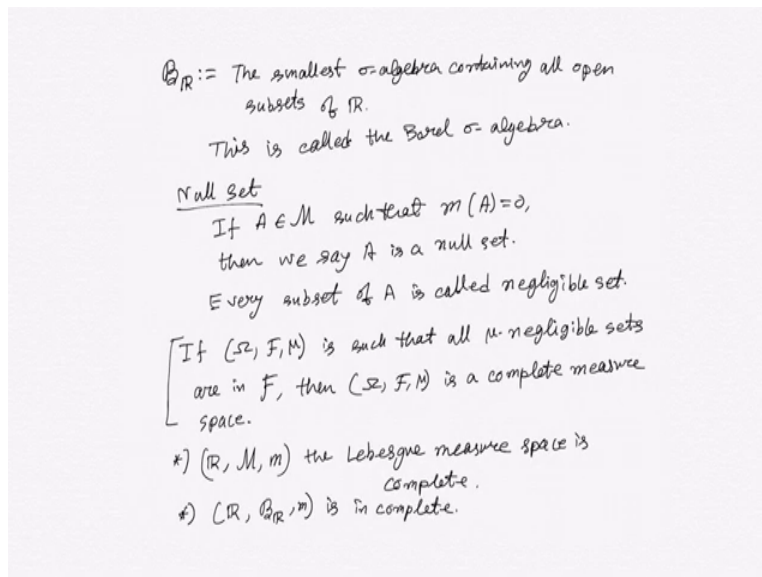 𝓑_ℝ := The smallest σ-algebra containing all open
subsets of ℝ.
This is called the Borel σ-algebra.
Null set
If A ∈ M such that m(A)=0,
then we say A is a null set.
Every subset of A is called negligible set.
[If (Ω, F, μ) is such that all μ-negligible sets
are in F, then (Ω, F, μ) is a complete measure
space.
*) (ℝ, M, m) the Lebesgue measure space is
complete.
*) (ℝ, 𝓑_ℝ, m) is in complete.